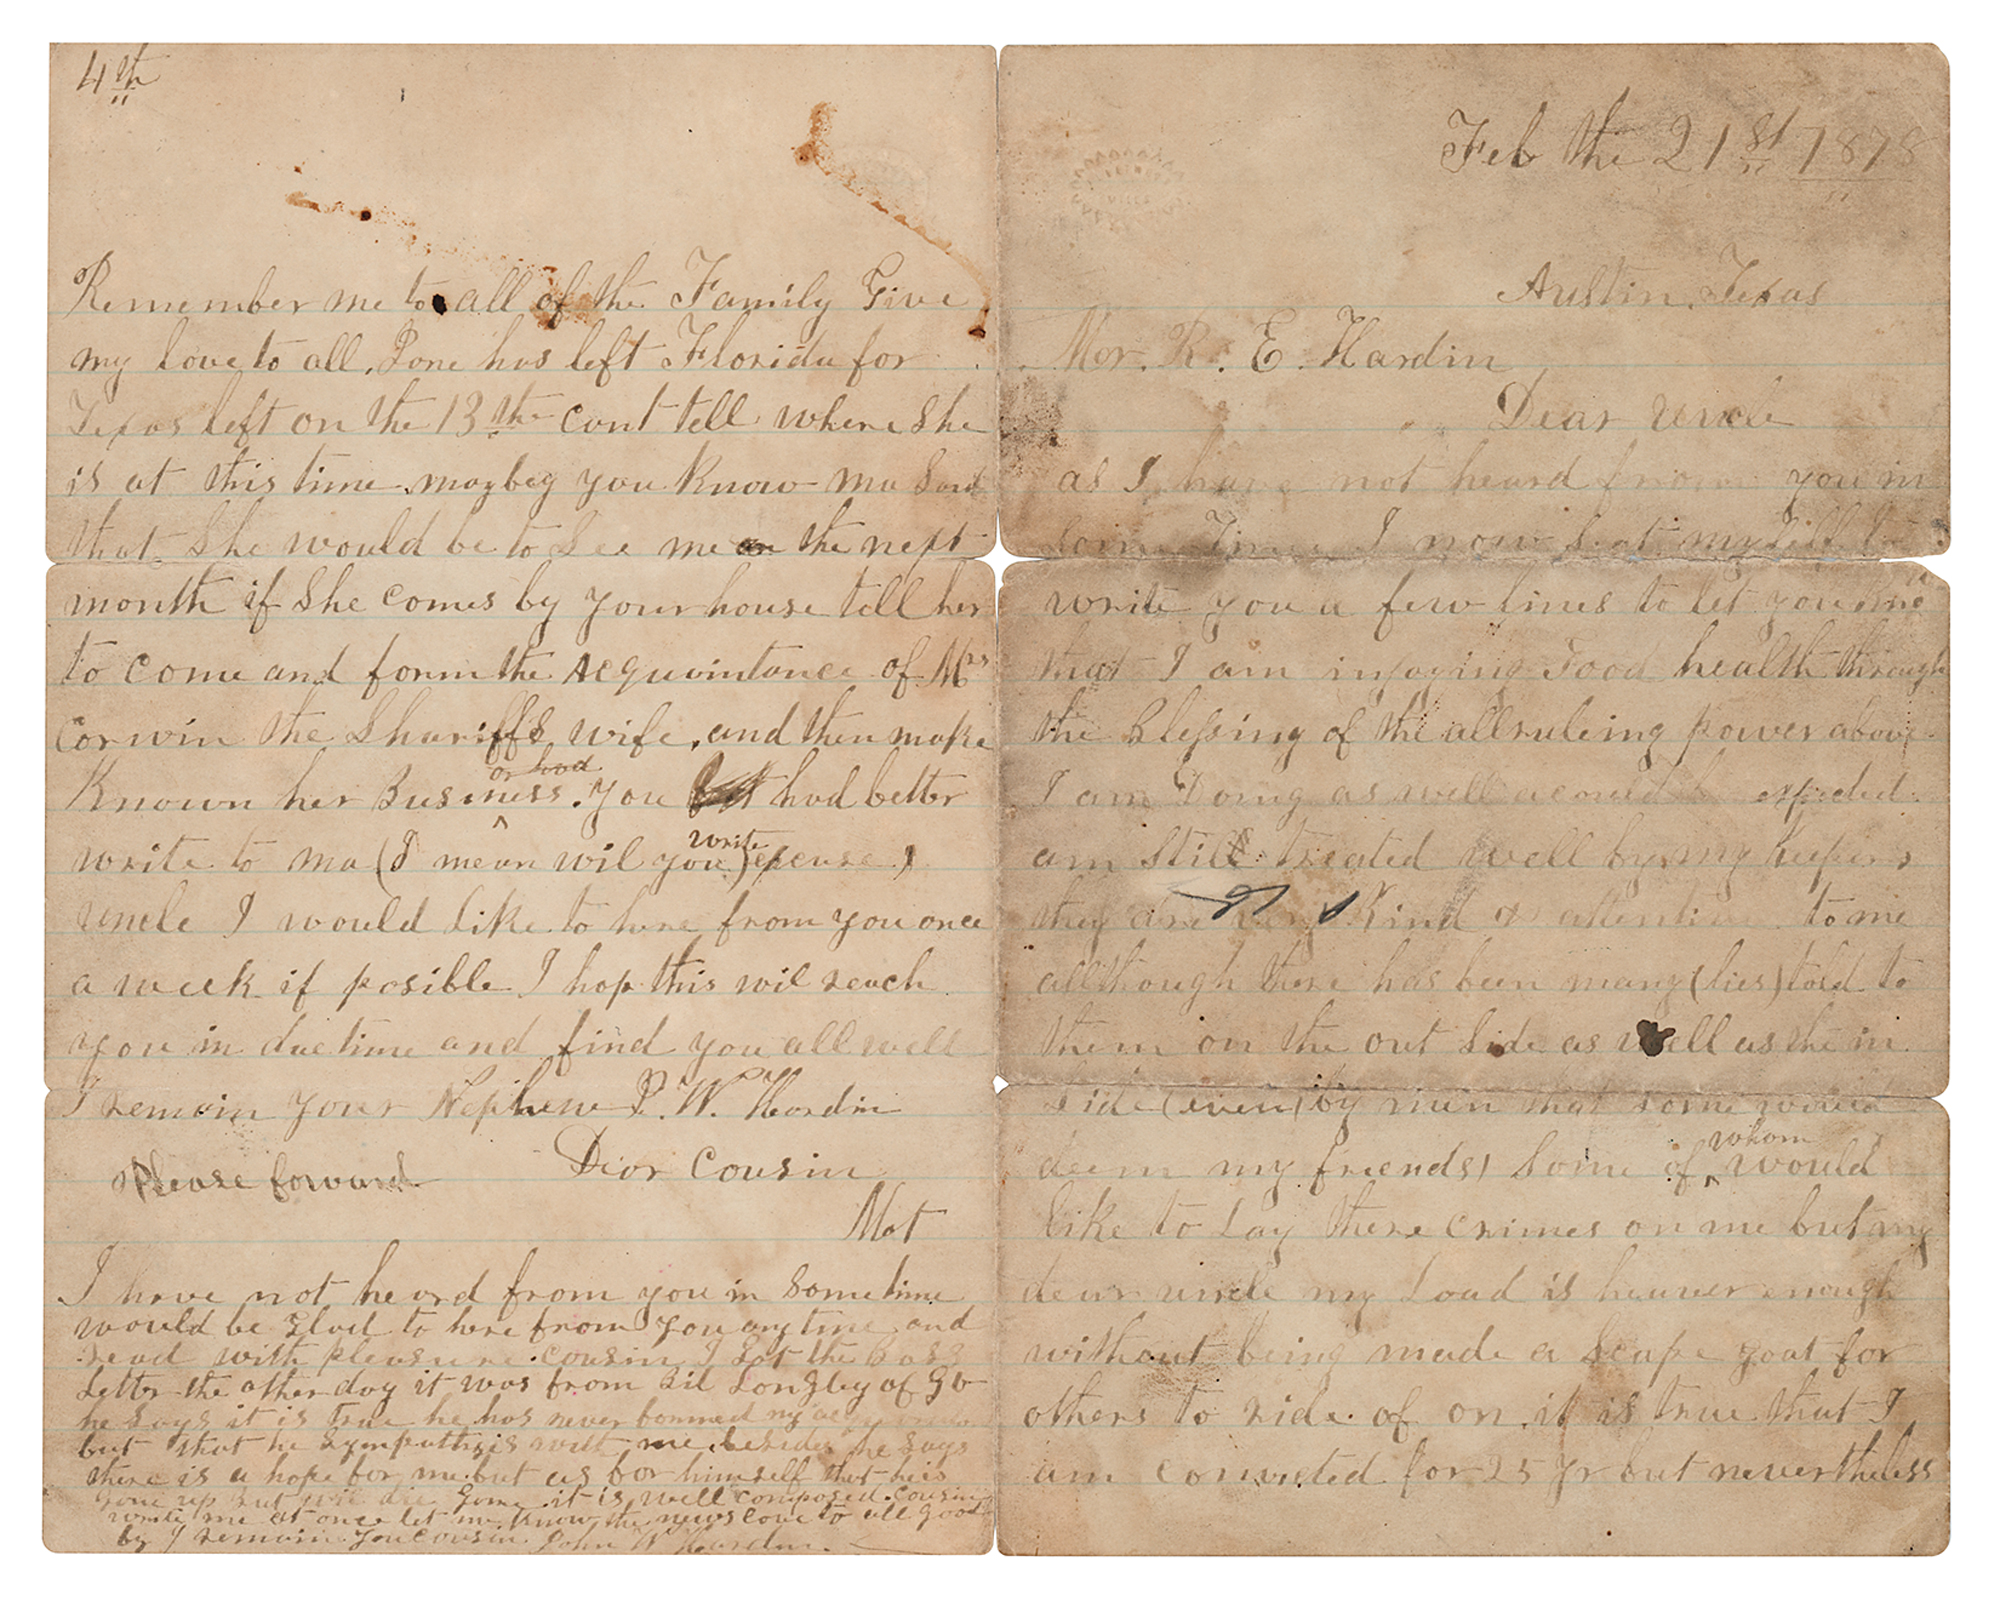 Feb the 21st 1878
Austin, Texas
Mr. R. E. Hardin
Dear Uncle
as I have not heard from you in
some Time I now seat myself to
write you a few lines to let you know
that I am injoying Good health through
the Blessing of the allruleing power above
I am Doing as well as could be expected.
am still treated well by my keepers,
they are very Kind & attentive to me
allthough there has been many (lies) told to
them on the out side as well as the in
side (even) by men that some would
deem my friends, some of whom would
like to Lay there crimes on me but my
dear uncle my Load is heaver enough
without being made a scape goat for
others to ride of on. it is true that I
am convicted for 25 yr but nevertheless
4th
Remember me to all of the Family Give
my love to all. Jane has left Florida for
Texas left on the 13th cant tell where she
is at this time. maybey you Know ma said
that she would be to See me on the next
month if she comes by your house tell her
to come and form the acquaintance of Mrs
Corwin the Shariffs wife, and then make
Known her Business. you had better
or had
write to ma (I mean wil you write) excuse,
uncle I would like to here from you once
a week if posible I hop this wil reach
you in due time and find you all well
I remain your Nephew J. W. Hardin
Please forward
Dior Cousin
Mat
I have not heard from you in some time
would be glad to here from you any time and
read with pleasure. cousin I got the Bass
Letter the other day it was from Bil Longley of Gv
he says it is true he has never formed my
but that he sympathisis with me besides he says
there is a hope for me. but as for himself that he is
gone up but wil die game. it is well composed. cousin
write me at once let me know the news love to all good
by I remain you cousin John W Hardin.